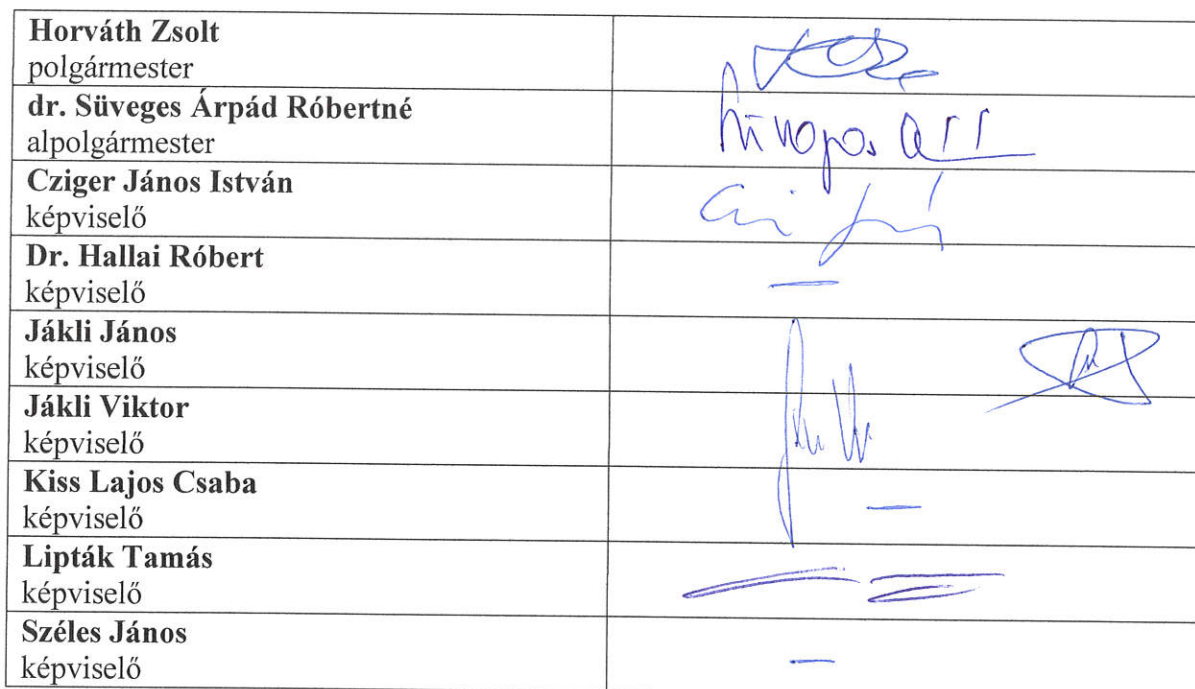 Horváth Zsolt
polgármester
dr. Süveges Árpád Róbertné
alpolgármester
Cziger János István
képviselő
Dr. Hallai Róbert
képviselő
—
Jákli János
képviselő
Jákli Viktor
képviselő
Kiss Lajos Csaba
képviselő
—
Lipták Tamás
képviselő
Széles János
képviselő
—